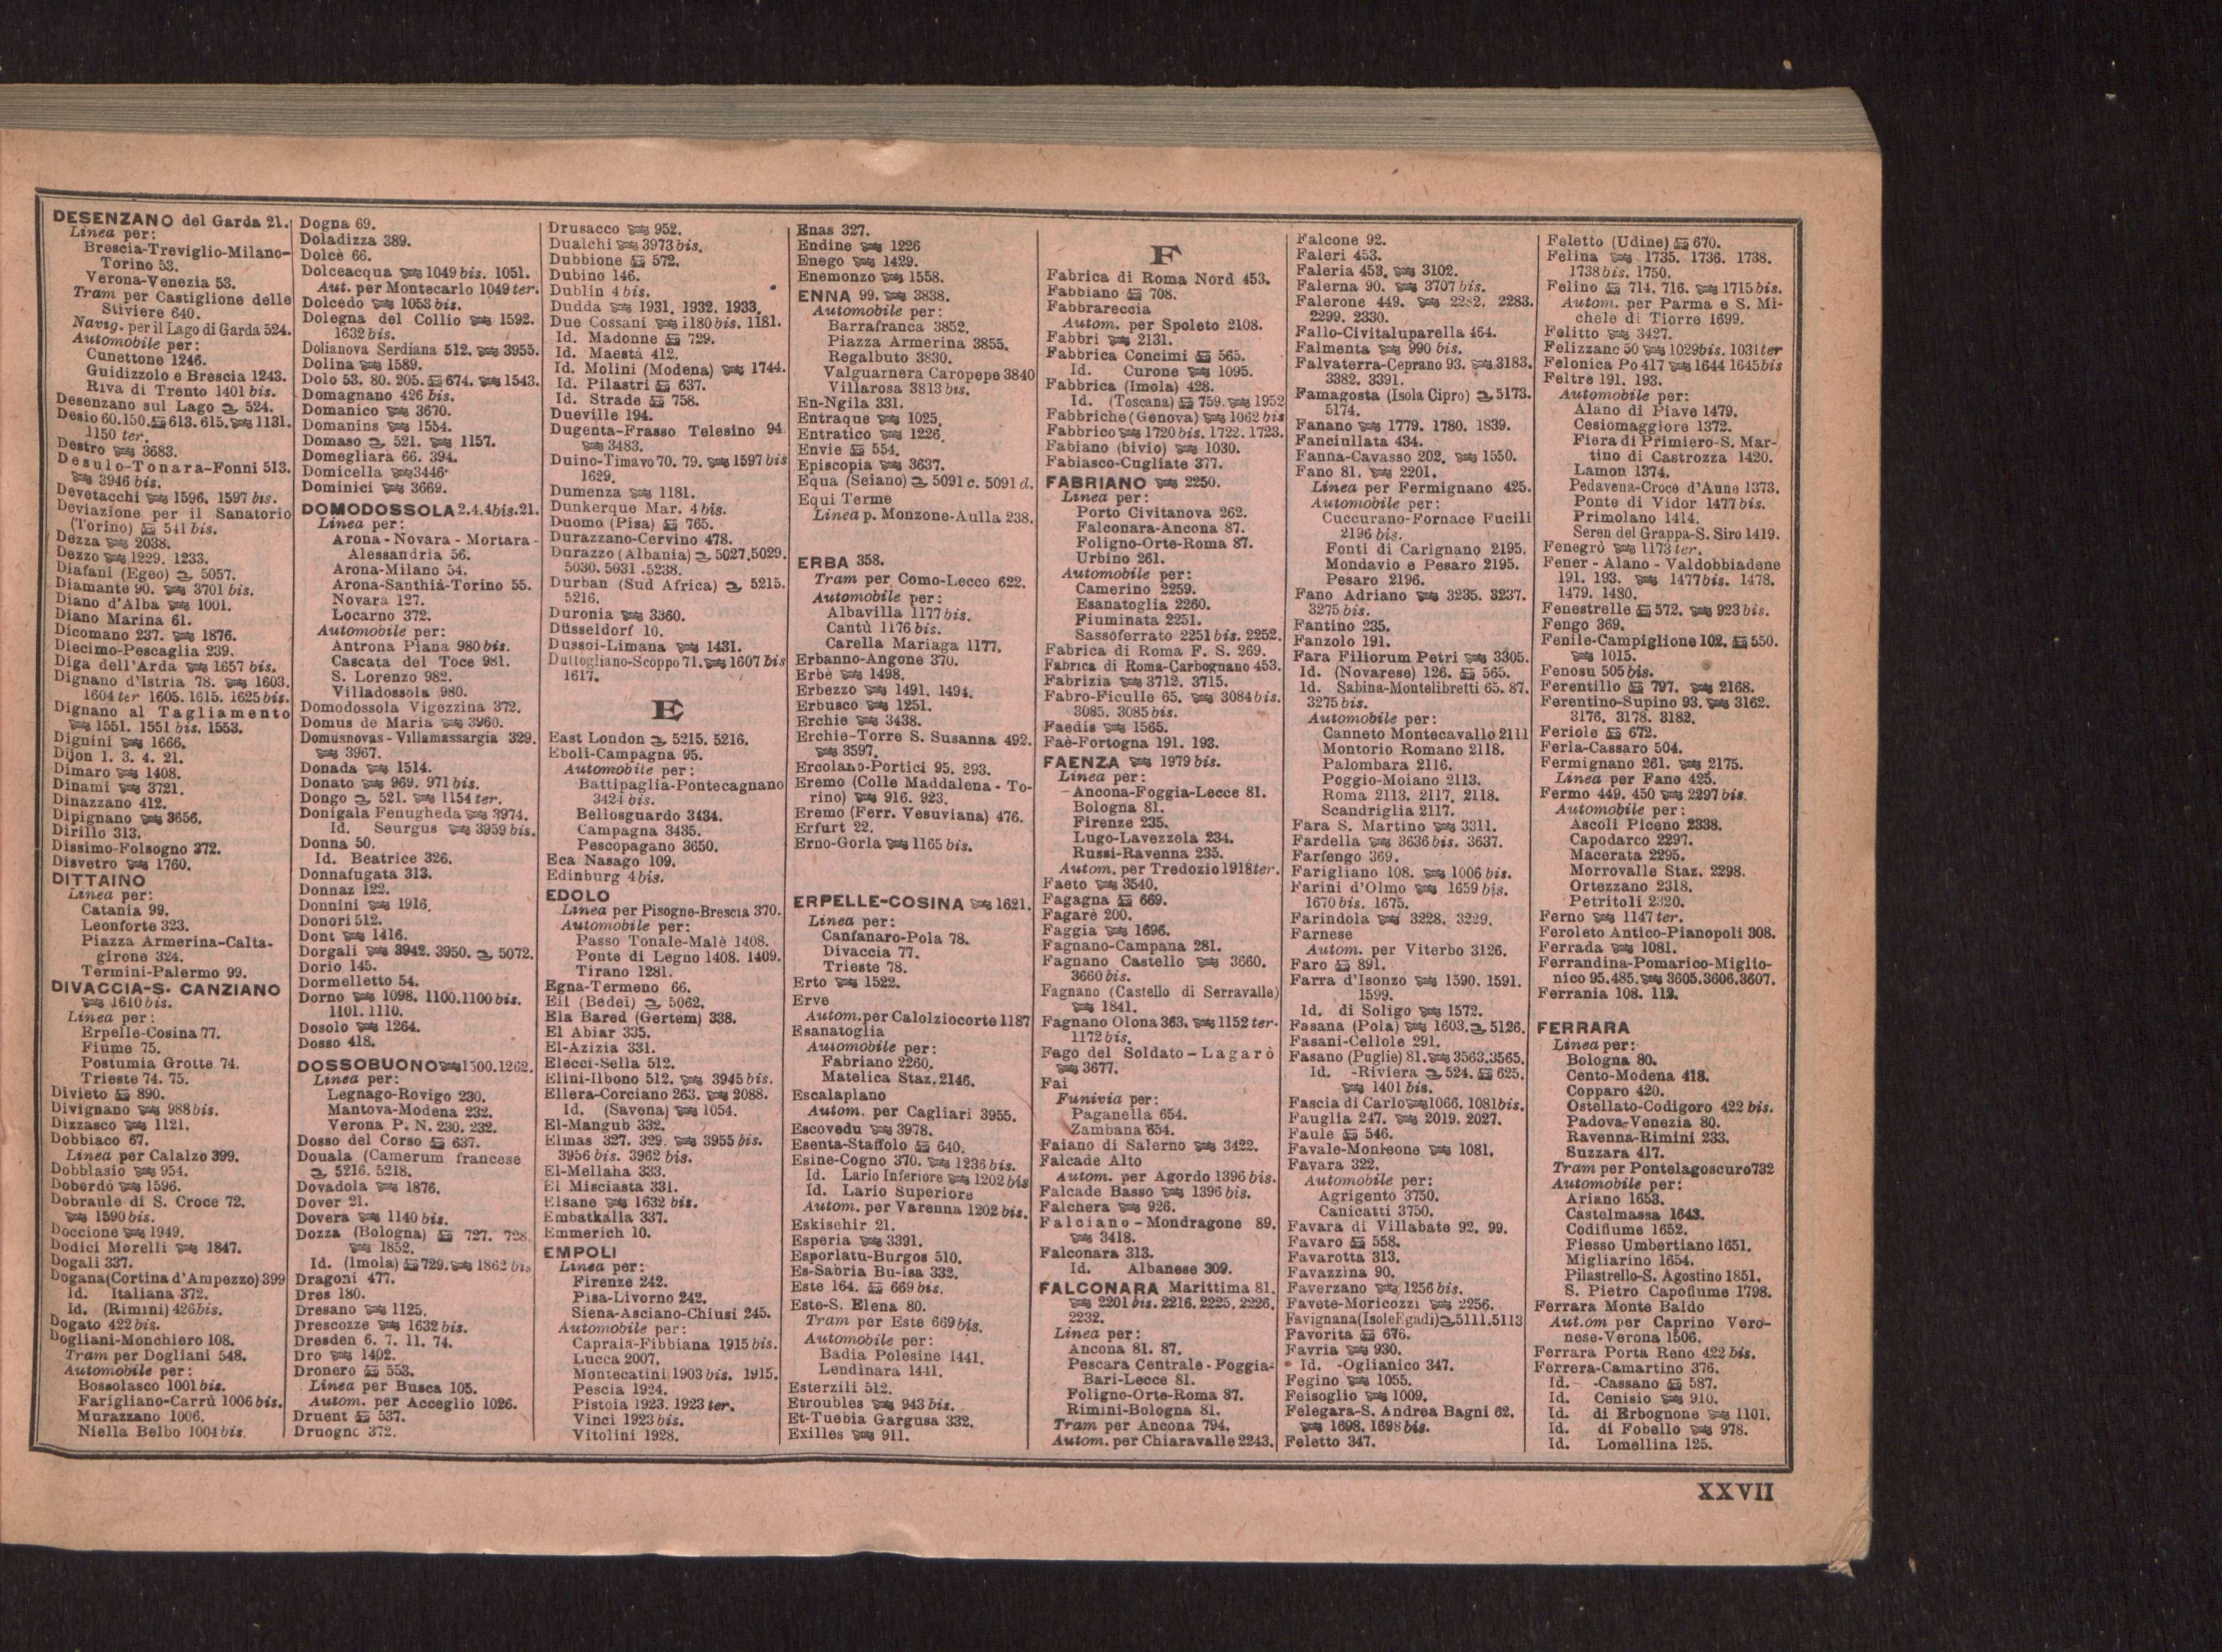 DESENZANO del Garda 21.
Linea per:
Brescia-Treviglio-Milano-
Torino 53.
Verona-Venezia 53.
Tram per Castiglione delle
Stiviere 640.
Navig. per il Lago di Garda 524.
Automobile per:
Cunettone 1246.
Guidizzolo e Brescia 1243.
Riva di Trento 1401 bis.
Desenzano sul Lago 524.
Desio 60. 150. 613. 615. 1131.
1150 ter.
Destro 3683.
Desulo-Tonara-Fonni 513.
3946 bis.
Devetacchi 1596. 1597 bis.
Deviazione per il Sanatorio
(Torino) 541 bis.
Dezza 2038.
Dezzo 1229. 1233.
Diafani (Egeo) 5057.
Diamante 90. 3701 bis.
Diano d'Alba 1001.
Diano Marina 61.
Dicomano 237. 1876.
Diecimo-Pescaglia 239.
Diga dell'Arda 1657 bis.
Dignano d'Istria 78. 1603.
1604 ter 1605. 1615. 1625 bis.
Dignano al Tagliamento
1551. 1551 bis. 1553.
Dignini 1666.
Dijon 1. 3. 4. 21.
Dimaro 1408.
Dinami 3721.
Dinazzano 412.
Dipignano 3656.
Dirillo 313.
Dissimo-Folsogno 372.
Disvetro 1760.
DITTAINO
Linea per:
Catania 99.
Leonforte 323.
Piazza Armerina-Calta-
girone 324.
Termini-Palermo 99.
DIVACCIA-S. CANZIANO
1610 bis.
Linea per:
Erpelle-Cosina 77.
Fiume 75.
Postumia Grotte 74.
Trieste 74. 75.
Divieto 890.
Divignano 988 bis.
Dizzasco 1121.
Dobbiaco 67.
Linea per Calalzo 399.
Dobblasio 954.
Doberdò 1596.
Dobraule di S. Croce 72.
1590 bis.
Doccione 1949.
Dodici Morelli 1847.
Dogali 337.
Dogana (Cortina d'Ampezzo) 399
Id. Italiana 372.
Id. (Rimini) 426 bis.
Dogato 422 bis.
Dogliani-Monchiero 108.
Tram per Dogliani 548.
Automobile per:
Bossolasco 1001 bis.
Farigliano-Carrù 1006 bis.
Murazzano 1006.
Niella Belbo 1004 bis.
Dogna 69.
Doladizza 389.
Dolcè 66.
Dolceacqua 1049 bis. 1051.
Aut. per Montecarlo 1049 ter.
Dolcedo 1053 bis.
Dolegna del Collio 1592.
1632 bis.
Dolianova Serdiana 512. 3955.
Dolina 1589.
Dolo 53. 80. 205. 674. 1543.
Domagnano 426 bis.
Domanico 3670.
Domanins 1554.
Domaso 521. 1157.
Domegliara 66. 394.
Domicella 3446.
Dominici 3669.
DOMODOSSOLA 2. 4. 4 bis. 21.
Linea per:
Arona - Novara - Mortara -
Alessandria 56.
Arona-Milano 54.
Arona-Santhià-Torino 55.
Novara 127.
Locarno 372.
Automobile per:
Antrona Piana 980 bis.
Cascata del Toce 981.
S. Lorenzo 982.
Villadossola 980.
Domodossola Vigezzina 372.
Domus de Maria 3960.
Domusnovas-Villamassargia 329.
3967.
Donada 1514.
Donato 969. 971 bis.
Dongo 521. 1154 ter.
Donigala Fenugheda 3974.
Id. Seurgus 3959 bis.
Donna 50.
Id. Beatrice 326.
Donnafugata 313.
Donnaz 122.
Donnini 1916.
Donori 512.
Dont 1416.
Dorgali 3942. 3950. 5072.
Dorio 145.
Dormelletto 54.
Dorno 1098. 1100. 1100 bis.
1101. 1110.
Dosolo 1264.
Dosso 418.
DOSSOBUONO 1500. 1262.
Linea per:
Legnago-Rovigo 230.
Mantova-Modena 232.
Verona P. N. 230. 232.
Dosso del Corso 637.
Douala (Camerum francese
5216. 5218.
Dovadola 1876.
Dover 21.
Dovera 1140 bis.
Dozza (Bologna) 727. 728.
1852.
Id. (Imola) 729. 1862 bis
Dragoni 477.
Dres 180.
Dresano 1125.
Drescozze 1632 bis.
Dresden 6. 7. 11. 74.
Dro 1402.
Dronero 553.
Linea per Busca 105.
Autom. per Acceglio 1026.
Druent 537.
Druogno 372.
Drusacco 952.
Dualchi 3973 bis.
Dubbione 572.
Dubino 146.
Dublin 4 bis.
Dudda 1931. 1932. 1933.
Due Cossani 1180 bis. 1181.
Id. Madonne 729.
Id. Maestà 412.
Id. Molini (Modena) 1744.
Id. Pilastri 637.
Id. Strade 758.
Dueville 194.
Dugenta-Frasso Telesino 94
3483.
Duino-Timavo 70. 79. 1597 bis
1629.
Dumenza 1181.
Dunkerque Mar. 4 bis.
Duomo (Pisa) 765.
Durazzano-Cervino 478.
Durazzo (Albania) 5027. 5029.
5030. 5031. 5238.
Durban (Sud Africa) 5215.
5216.
Duronia 3360.
Düsseldorf 10.
Dussoi-Limana 1431.
Duttogliano-Scoppo 71. 1607 bis
1617.
E
East London 5215. 5216.
Eboli-Campagna 95.
Automobile per:
Battipaglia-Pontecagnano
3424 bis.
Bellosguardo 3434.
Campagna 3435.
Pescopagano 3650.
Eca Nasago 109.
Edinburg 4 bis.
EDOLO
Linea per Pisogne-Brescia 370.
Automobile per:
Passo Tonale-Malè 1408.
Ponte di Legno 1408. 1409.
Tirano 1281.
Egna-Termeno 66.
Eil (Bedei) 5062.
Ela Bared (Gertem) 338.
El Abiar 335.
El-Azizia 331.
Elecci-Sella 512.
Elini-Ilbono 512. 3945 bis.
Ellera-Corciano 263. 2088.
Id. (Savona) 1054.
El-Mangub 332.
Elmas 327. 329. 3955 bis.
3956 bis. 3962 bis.
El-Mellaha 333.
El Misciasta 331.
Elsane 1632 bis.
Embatkalla 337.
Emmerich 10.
EMPOLI
Linea per:
Firenze 242.
Pisa-Livorno 242.
Siena-Asciano-Chiusi 245.
Automobile per:
Capraia-Fibbiana 1915 bis.
Lucca 2007.
Montecatini 1903 bis. 1915.
Pescia 1924.
Pistoia 1923. 1923 ter.
Vinci 1923 bis.
Vitolini 1928.
Enas 327.
Endine 1226
Enego 1429.
Enemonzo 1558.
ENNA 99. 3838.
Automobile per:
Barrafranca 3852.
Piazza Armerina 3855.
Regalbuto 3830.
Valguarnera Caropepe 3840
Villarosa 3813 bis.
En-Ngila 331.
Entraque 1025.
Entratico 1226.
Envie 554.
Episcopia 3637.
Equa (Seiano) 5091 c. 5091 d.
Equi Terme
Linea p. Monzone-Aulla 238.
ERBA 358.
Tram per Como-Lecco 622.
Automobile per:
Albavilla 1177 bis.
Cantù 1176 bis.
Carella Mariaga 1177.
Erbanno-Angone 370.
Erbè 1498.
Erbezzo 1491. 1494.
Erbusco 1251.
Erchie 3438.
Erchie-Torre S. Susanna 492.
3597.
Ercolano-Portici 95. 293.
Eremo (Colle Maddalena - To-
rino) 916. 923.
Eremo (Ferr. Vesuviana) 476.
Erfurt 22.
Erno-Gorla 1165 bis.
ERPELLE-COSINA 1621.
Linea per:
Canfanaro-Pola 78.
Divaccia 77.
Trieste 78.
Erto 1522.
Erve
Autom. per Calolziocorte 1187
Esanatoglia
Automobile per:
Fabriano 2260.
Matelica Staz. 2146.
Escalaplano
Autom. per Cagliari 3955.
Escovedu 3978.
Esenta-Staffolo 640.
Esine-Cogno 370. 1236 bis.
Id. Lario Inferiore 1202 bis
Id. Lario Superiore
Autom. per Varenna 1202 bis.
Eskisehir 21.
Esperia 3391.
Esporlatu-Burgos 510.
Es-Sabria Bu-Isa 332.
Este 164. 669 bis.
Este-S. Elena 80.
Tram per Este 669 bis.
Automobile per:
Badia Polesine 1441.
Lendinara 1441.
Esterzili 512.
Etroubles 943 bis.
Et-Tuebia Gargusa 332.
Exilles 911.
F
Fabrica di Roma Nord 453.
Fabbiano 708.
Fabbrareccia
Autom. per Spoleto 2108.
Fabbri 2131.
Fabbrica Concimi 565.
Id. Curone 1095.
Fabbrica (Imola) 428.
Id. (Toscana) 759. 1952
Fabbriche (Genova) 1062 bis
Fabbrico 1720 bis. 1722. 1723.
Fabiano (bivio) 1030.
Fabiasco-Cugliate 377.
FABRIANO 2250.
Linea per:
Porto Civitanova 262.
Falconara-Ancona 87.
Foligno-Orte-Roma 87.
Urbino 261.
Automobile per:
Camerino 2259.
Esanatoglia 2260.
Fiuminata 2251.
Sassoferrato 2251 bis. 2252.
Fabrica di Roma F. S. 269.
Fabrica di Roma-Carbognano 453.
Fabrizia 3712. 3715.
Fabro-Ficulle 65. 3084 bis.
3085. 3085 bis.
Faedis 1565.
Faè-Fortogna 191. 193.
FAENZA 1979 bis.
Linea per:
Ancona-Foggia-Lecce 81.
Bologna 81.
Firenze 235.
Lugo-Lavezzola 234.
Russi-Ravenna 235.
Autom. per Tredozio 1918 ter.
Faeto 3540.
Fagagna 669.
Fagarè 200.
Faggia 1696.
Fagnano-Campana 281.
Fagnano Castello 3660.
3660 bis.
Fagnano (Castello di Serravalle)
1841.
Fagnano Olona 363. 1152 ter.
1172 bis.
Fago del Soldato-Lagarò
3677.
Fai
Funivia per:
Paganella 654.
Zambana 654.
Faiano di Salerno 3422.
Falcade Alto
Autom. per Agordo 1396 bis.
Falcade Basso 1396 bis.
Falchera 926.
Falciano-Mondragone 89.
3418.
Falconara 313.
Id. Albanese 309.
FALCONARA Marittima 81.
2201 bis. 2216. 2225. 2226.
2232.
Linea per:
Ancona 81. 87.
Pescara Centrale-Foggia-
Bari-Lecce 81.
Foligno-Orte-Roma 87.
Rimini-Bologna 81.
Tram per Ancona 794.
Autom. per Chiaravalle 2243.
Falcone 92.
Faleri 453.
Faleria 453. 3102.
Falerna 90. 3707 bis.
Falerone 449. 2282. 2283.
2299. 2330.
Fallo-Civitaluparella 464.
Falmenta 990 bis.
Falvaterra-Ceprano 93. 3183.
3382. 3391.
Famagosta (Isola Cipro) 5173.
5174.
Fanano 1779. 1780. 1839.
Fanciullata 434.
Fanna-Cavasso 202. 1550.
Fano 81. 2201.
Linea per Fermignano 425.
Automobile per:
Cuccurano-Fornace Fucili
2196 bis.
Fonti di Carignano 2195.
Mondavio e Pesaro 2195.
Pesaro 2196.
Fano Adriano 3235. 3237.
3275 bis.
Fantino 235.
Fanzolo 191.
Fara Filiorum Petri 3305.
Id. (Novarese) 126. 565.
Id. Sabina-Montelibretti 65. 87.
3275 bis.
Automobile per:
Canneto Montecavallo 2111
Montorio Romano 2118.
Palombara 2116.
Poggio-Moiano 2113.
Roma 2113. 2117. 2118.
Scandriglia 2117.
Fara S. Martino 3311.
Fardella 3636 bis. 3637.
Farfengo 369.
Farigliano 108. 1006 bis.
Farini d'Olmo 1659 bis.
1670 bis. 1675.
Farindola 3228. 3229.
Farnese
Autom. per Viterbo 3126.
Faro 891.
Farra d'Isonzo 1590. 1591.
1599.
Id. di Soligo 1572.
Fasana (Pola) 1603. 5126.
Fasani-Cellole 291.
Fasano (Puglie) 81. 3563. 3565.
Id. -Riviera 524. 625.
1401 bis.
Fascia di Carlo 1066. 1081 bis.
Fauglia 247. 2019. 2027.
Faule 546.
Favale-Monleone 1081.
Favara 322.
Automobile per:
Agrigento 3750.
Canicatti 3750.
Favara di Villabate 92. 99.
Favaro 558.
Favarotta 313.
Favazzina 90.
Faverzano 1256 bis.
Favete-Moricozzi 2256.
Favignana (Isole Egadi) 5111. 5113
Favorita 676.
Favria 930.
Id. -Oglianico 347.
Fegino 1055.
Feisoglio 1009.
Felegara-S. Andrea Bagni 62.
1698. 1698 bis.
Feletto 347.
Feletto (Udine) 670.
Felina 1735. 1736. 1738.
1738 bis. 1750.
Felino 714. 716. 1715 bis.
Autom. per Parma e S. Mi-
chele di Tiorre 1699.
Felitto 3427.
Felizzano 50 1029 bis. 1031 ter
Felonica Po 417 1644 1645 bis
Feltre 191. 193.
Automobile per:
Alano di Piave 1479.
Cesiomaggiore 1372.
Fiera di Primiero-S. Mar-
tino di Castrozza 1420.
Lamon 1374.
Pedavena-Croce d'Aune 1373.
Ponte di Vidor 1477 bis.
Primolano 1414.
Seren del Grappa-S. Siro 1419.
Fenegrò 1173 ter.
Fener - Alano - Valdobbiadene
191. 193. 1477 bis. 1478.
1479. 1480.
Fenestrelle 572. 923 bis.
Fengo 369.
Fenile-Campiglione 102. 550.
1015.
Fenosu 505 bis.
Ferentillo 797. 2168.
Ferentino-Supino 93. 3162.
3176. 3178. 3182.
Feriole 672.
Ferla-Cassaro 504.
Fermignano 261. 2175.
Linea per Fano 425.
Fermo 449. 450 2297 bis.
Automobile per:
Ascoli Piceno 2338.
Capodarco 2297.
Macerata 2295.
Morrovalle Staz. 2298.
Ortezzano 2318.
Petritoli 2320.
Ferno 1147 ter.
Feroleto Antico-Pianopoli 308.
Ferrada 1081.
Ferrandina-Pomarico-Miglio-
nico 95. 485. 3605. 3606. 3607.
Ferrania 108. 112.
FERRARA
Linea per:
Bologna 80.
Cento-Modena 418.
Copparo 420.
Ostellato-Codigoro 422 bis.
Padova-Venezia 80.
Ravenna-Rimini 233.
Suzzara 417.
Tram per Pontelagoscuro 732
Automobile per:
Ariano 1653.
Castelmassa 1643.
Codifiume 1652.
Fiesso Umbertiano 1651.
Migliarino 1654.
Pilastrello-S. Agostino 1851.
S. Pietro Capofiume 1798.
Ferrara Monte Baldo
Aut.om per Caprino Vero-
nese-Verona 1506.
Ferrara Porta Reno 422 bis.
Ferrera-Camartino 376.
Id. -Cassano 587.
Id. Cenisio 910.
Id. di Erbognone 1101.
Id. di Fobello 978.
Id. Lomellina 125.
XXVII